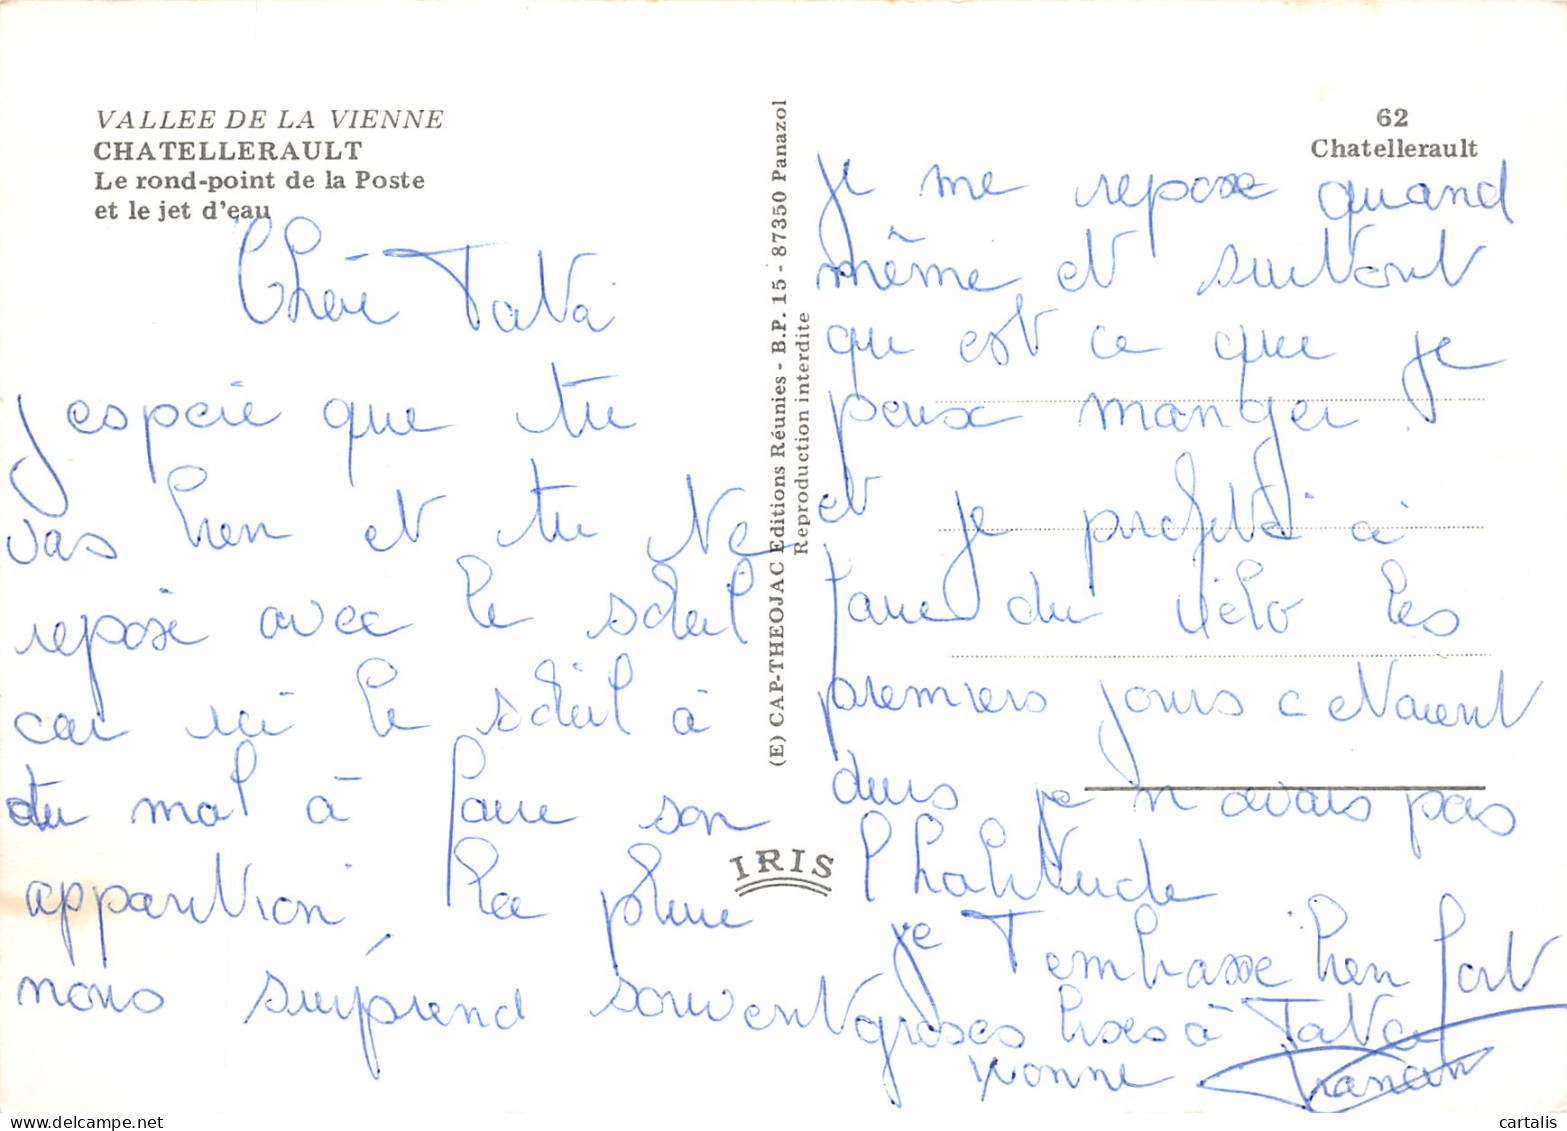 VALLEE DE LA VIENNE
CHATELLERAULT
Le rond-point de la Poste
et le jet d'eau
Chère Tata
j espere que tu
vas bien et tu te
repose avec le soleil
car ici le soleil à
du mal à faire son
apparition, la pluie
nous surprend souvent
(E) CAP-THEOJAC Editions Réunies - B.P. 15 - 87350 Panazol
Reproduction interdite
IRIS
62
Chatellerault
je me repose quand
même et surtout
qu est ce que je
peux manger.
et je profite à
faire du vélo les
premiers jours c etaient
durs je n avais pas
l habitude
je t embrasse bien fort
groses bises à Tata
Yvonne